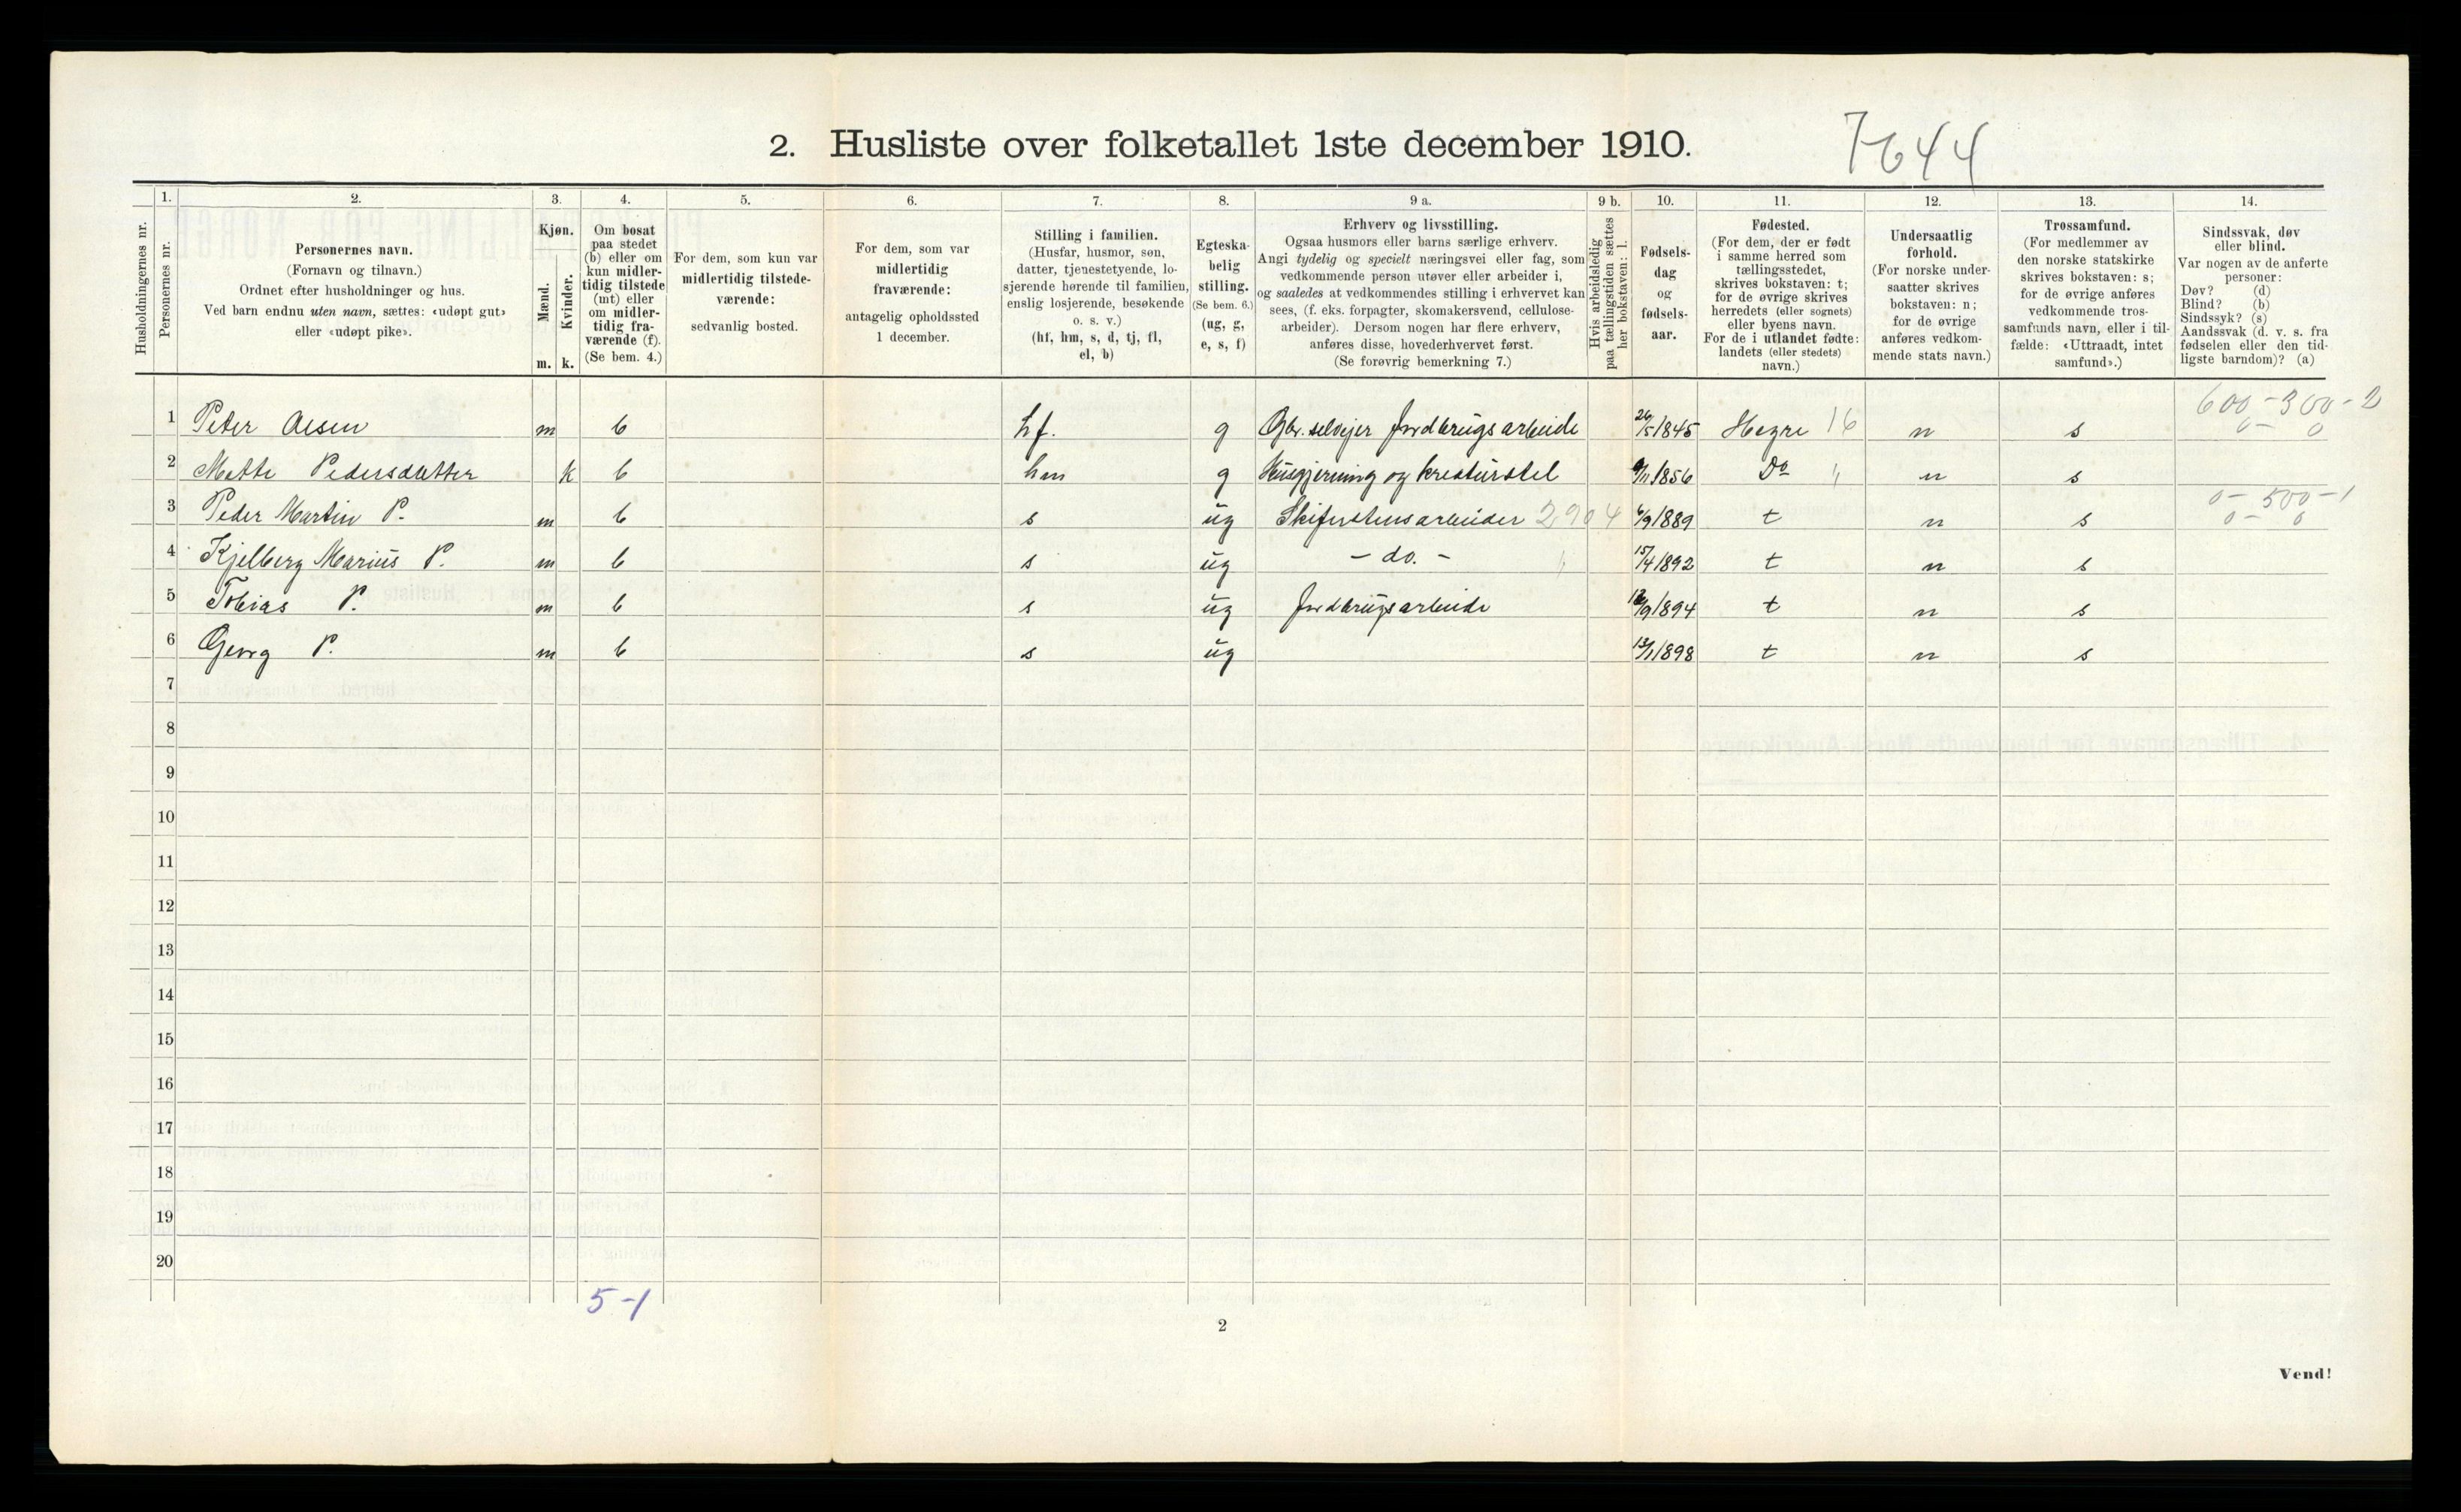 2. Husliste over folketallet 1ste december 1910.
7644
Husholdningernes nr.
1. Personernes nr.
2. Personernes navn.
(Fornavn og tilnavn.)
Ordnet efter husholdninger og hus.
Ved barn endnu uten navn, sættes: «udøpt gut»
eller «udøpt pike».
3. Kjøn.
Mænd. m.
Kvinder. k.
4. Om bosat
paa stedet
(b) eller om
kun midler-
tidig tilstede
(mt) eller
om midler-
tidig fra-
værende (f).
(Se bem. 4.)
5. For dem, som kun var
midlertidig tilstede-
værende:
sedvanlig bosted.
6. For dem, som var
midlertidig
fraværende:
antagelig opholdssted
1 december.
7. Stilling i familien.
(Husfar, husmor, søn,
datter, tjenestetyende, lo-
sjerende hørende til familien,
enslig losjerende, besøkende
o. s. v.)
(hf, hm, s, d, tj, fl,
el, b)
8. Egteska-
belig
stilling.
(Se bem. 6.)
(ug, g,
e, s, f)
9 a. Erhverv og livsstilling.
Ogsaa husmors eller barns særlige erhverv.
Angi tydelig og specielt næringsvei eller fag, som
vedkommende person utøver eller arbeider i,
og saaledes at vedkommendes stilling i erhvervet kan
sees, (f. eks. forpagter, skomakersvend, cellulose-
arbeider). Dersom nogen har flere erhverv,
anføres disse, hovederhvervet først.
(Se forøvrig bemerkning 7.)
9 b. Hvis arbeidsledig
paa tællingstiden sættes
her bokstaven: l.
10. Fødsels-
dag
og
fødsels-
aar.
11. Fødested.
(For dem, der er født
i samme herred som
tællingsstedet,
skrives bokstaven: t;
for de øvrige skrives
herredets (eller sognets)
eller byens navn.
For de i utlandet fødte:
landets (eller stedets)
navn.)
12. Undersaatlig
forhold.
(For norske under-
saatter skrives
bokstaven: n;
for de øvrige
anføres vedkom-
mende stats navn.)
13. Trossamfund.
(For medlemmer av
den norske statskirke
skrives bokstaven: s;
for de øvrige anføres
vedkommende tros-
samfunds navn, eller i til-
fælde: «Uttraadt, intet
samfund».)
14. Sindssvak, døv
eller blind.
Var nogen av de anførte
personer:
Døv? (d)
Blind? (b)
Sindssyk? (s)
Aandssvak (d. v. s. fra
fødselen eller den tid-
ligste barndom)? (a)
600-300-2
1 Peter Olsen m b hf. g Gbr. selveier Jordbrugsarbeide 26/5 1845 Hegre 16 n s 0- 0
2 Mette Pedersdatter k b hm g Husgjerning og kreaturstel /11 1856 Do " n s
0-500-1
3 Peder Martin P. m b s ug Skiferstensarbeider 2904 6/9 1889 t n s 0- 0
4 Kjelberg Marius P. m b s ug - do. - " 15/4 1892 t n s
5 Tobias P. m b s ug Jordbrugsarbeide /9 1894 t n s
6 Georg P. m b s ug 13/1 1898 t n s
7
8
9
10
11
12
13
14
15
16
17
18
19
20
5-1
2
Vend!